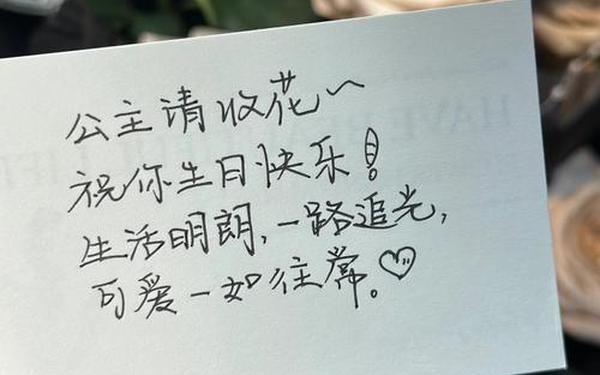 公主请收花~
祝你生日快乐!
生活明朗,一路追光,
可爱一如往常。♡